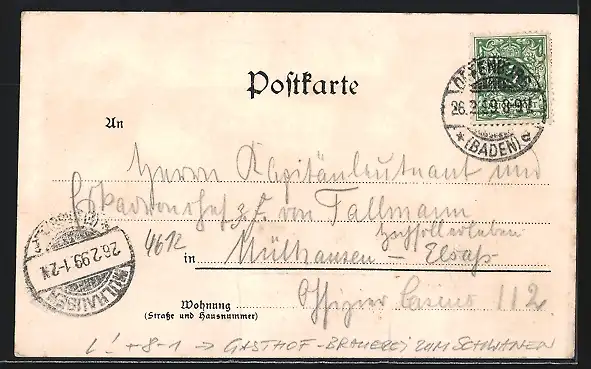 Postkarte
OFFENBURG
26.2.99.8-9V.
*(BADEN)a
An
Herrn Kapitänleutnant und
Eskadronchef z. F. von Tallmann
Hochwohlgeboren
4612
in Mülhausen - Elsass
MÜLHAUSEN
26.2.99.1-2N
Wohnung
(Straße und Hausnummer)
Offizier Casino 112
L! + 8-1 → GASTHOF - BRAUEREI ZUM SCHWANEN